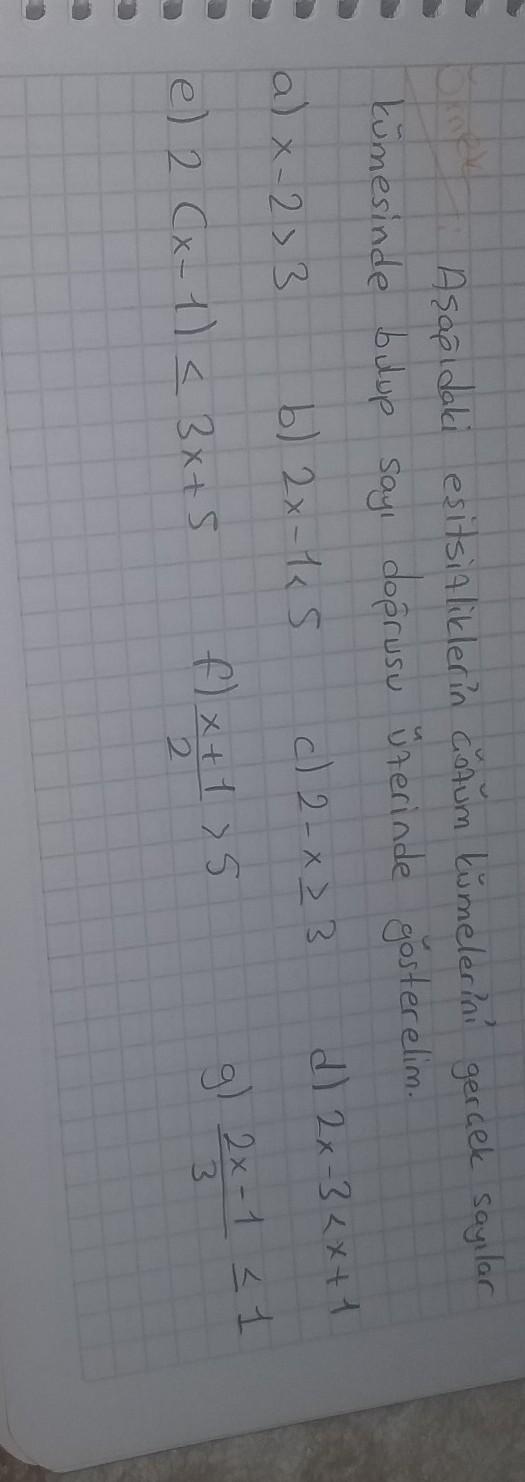 Örnek : Aşağıdaki eşitsizliklerin çözüm kümelerini gerçek sayılar
kümesinde bulup sayı doğrusu üzerinde gösterelim.
a) x-2>3 b) 2x-1<5 c) 2-x≥3 d) 2x-3<x+1
e) 2(x-1)≤3x+5 f) (x+1)/2 >5 g) (2x-1)/3 ≤1